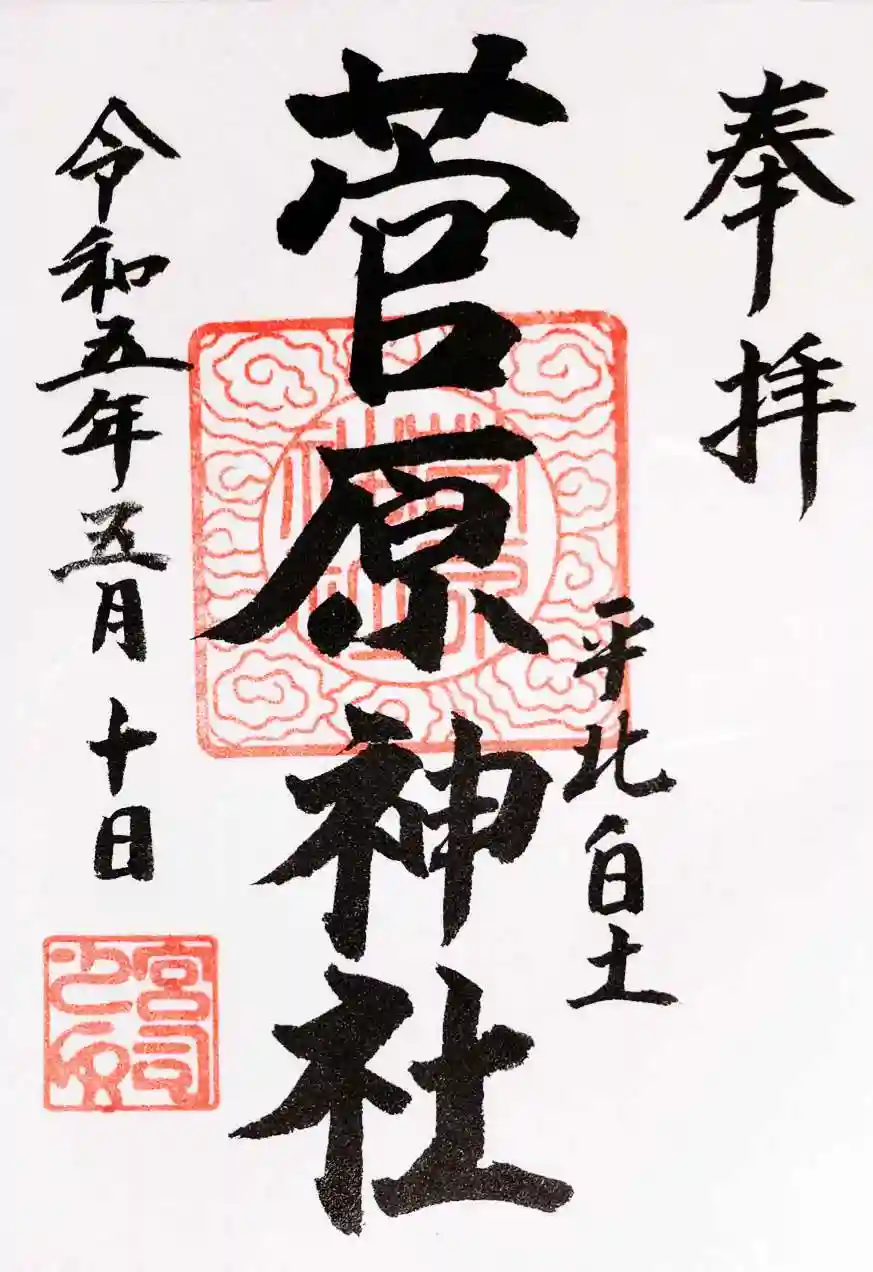 奉拝
平北白土
菅原神社
令和五年五月十日
宮司之印